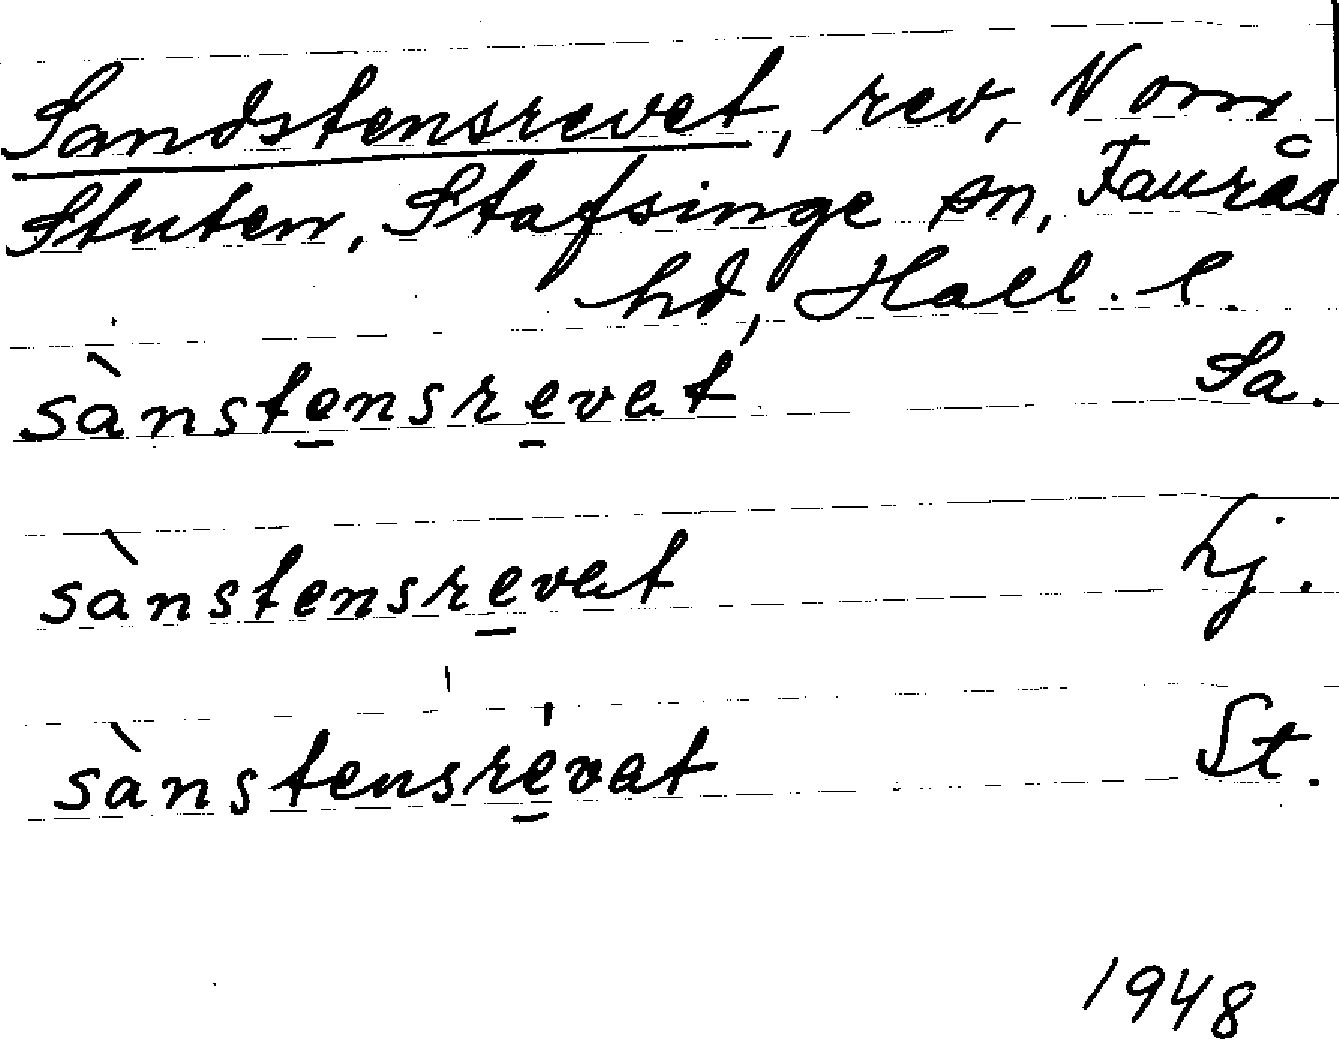 Sandstensrevet, rev, N om
Stuten, Stafsinge sn, Faurås
hd, Hall. l.
sànstensrevet Sa.
sànstensrevet Lj.
sànstensrévat St.
1948